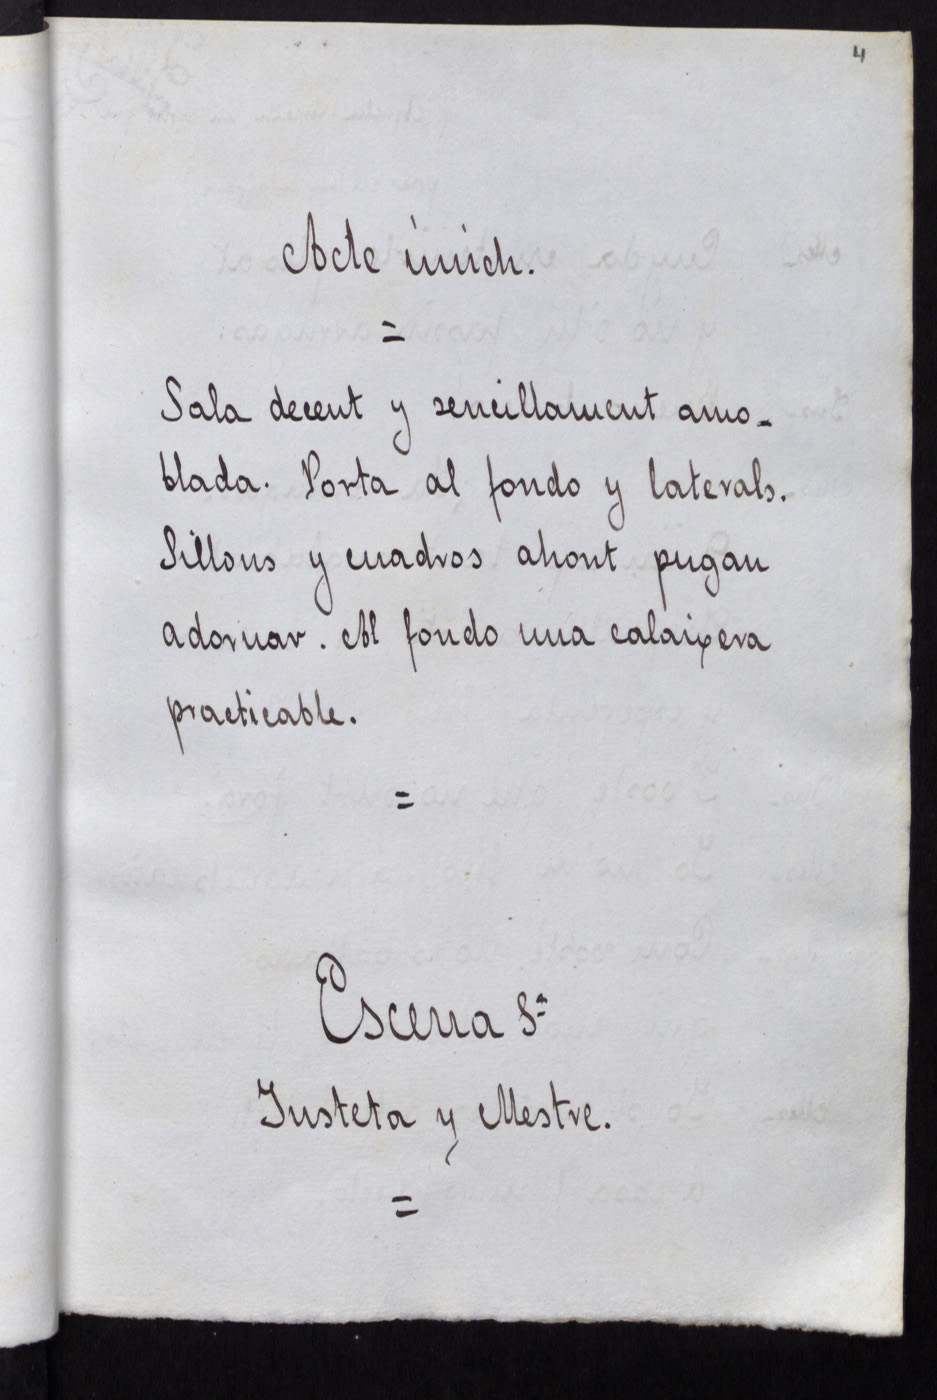 4
Acte únich.
=
Sala decent y sencillament amo-
blada. Porta al fondo y laterals.
Sillons y cuadros ahont pugan
adornar. Al fondo una calaixera
practicable.
=
Escena 1ª
Justeta y Mestre.
=